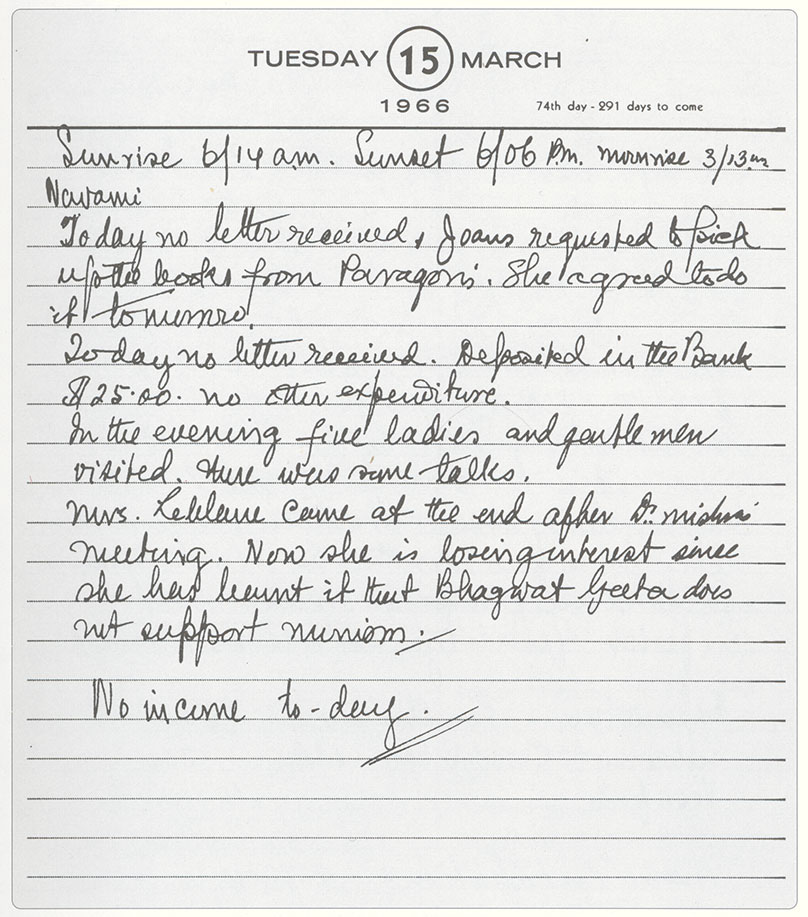 TUESDAY 15 MARCH
1966 74th day - 291 days to come
Sunrise 6/14 am. Sunset 6/06 P.m. moonrise 3/13 am
Navami
Today no letter received, Joans requested to pick
up the books from Paragons. She agreed to do
it tomorrow.
Today no letter received. Deposited in the Bank
$25.00. no other expenditure.
In the evening five ladies and gentlemen
visited. There was some talks.
Mrs. came at the end after Dr. mishra's
meeting. Now she is losing interest since
she has learnt it that Bhagwat Geeta does
not support monism.
No income to-day.